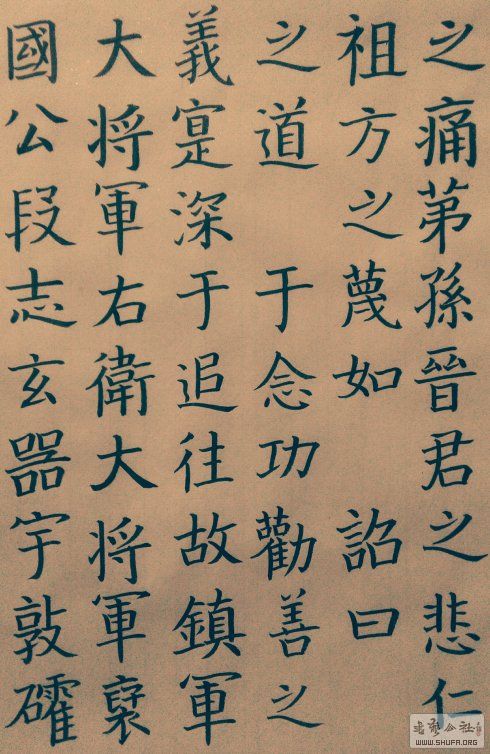 之痛苐孫晉君之悲仁
祖方之蔑如 詔曰
之道 于念功勸善之
義寔深于追往故鎮軍
大将軍右衛大将軍襃
國公段志玄器宇敦礭
WWW.SHUFA.ORG